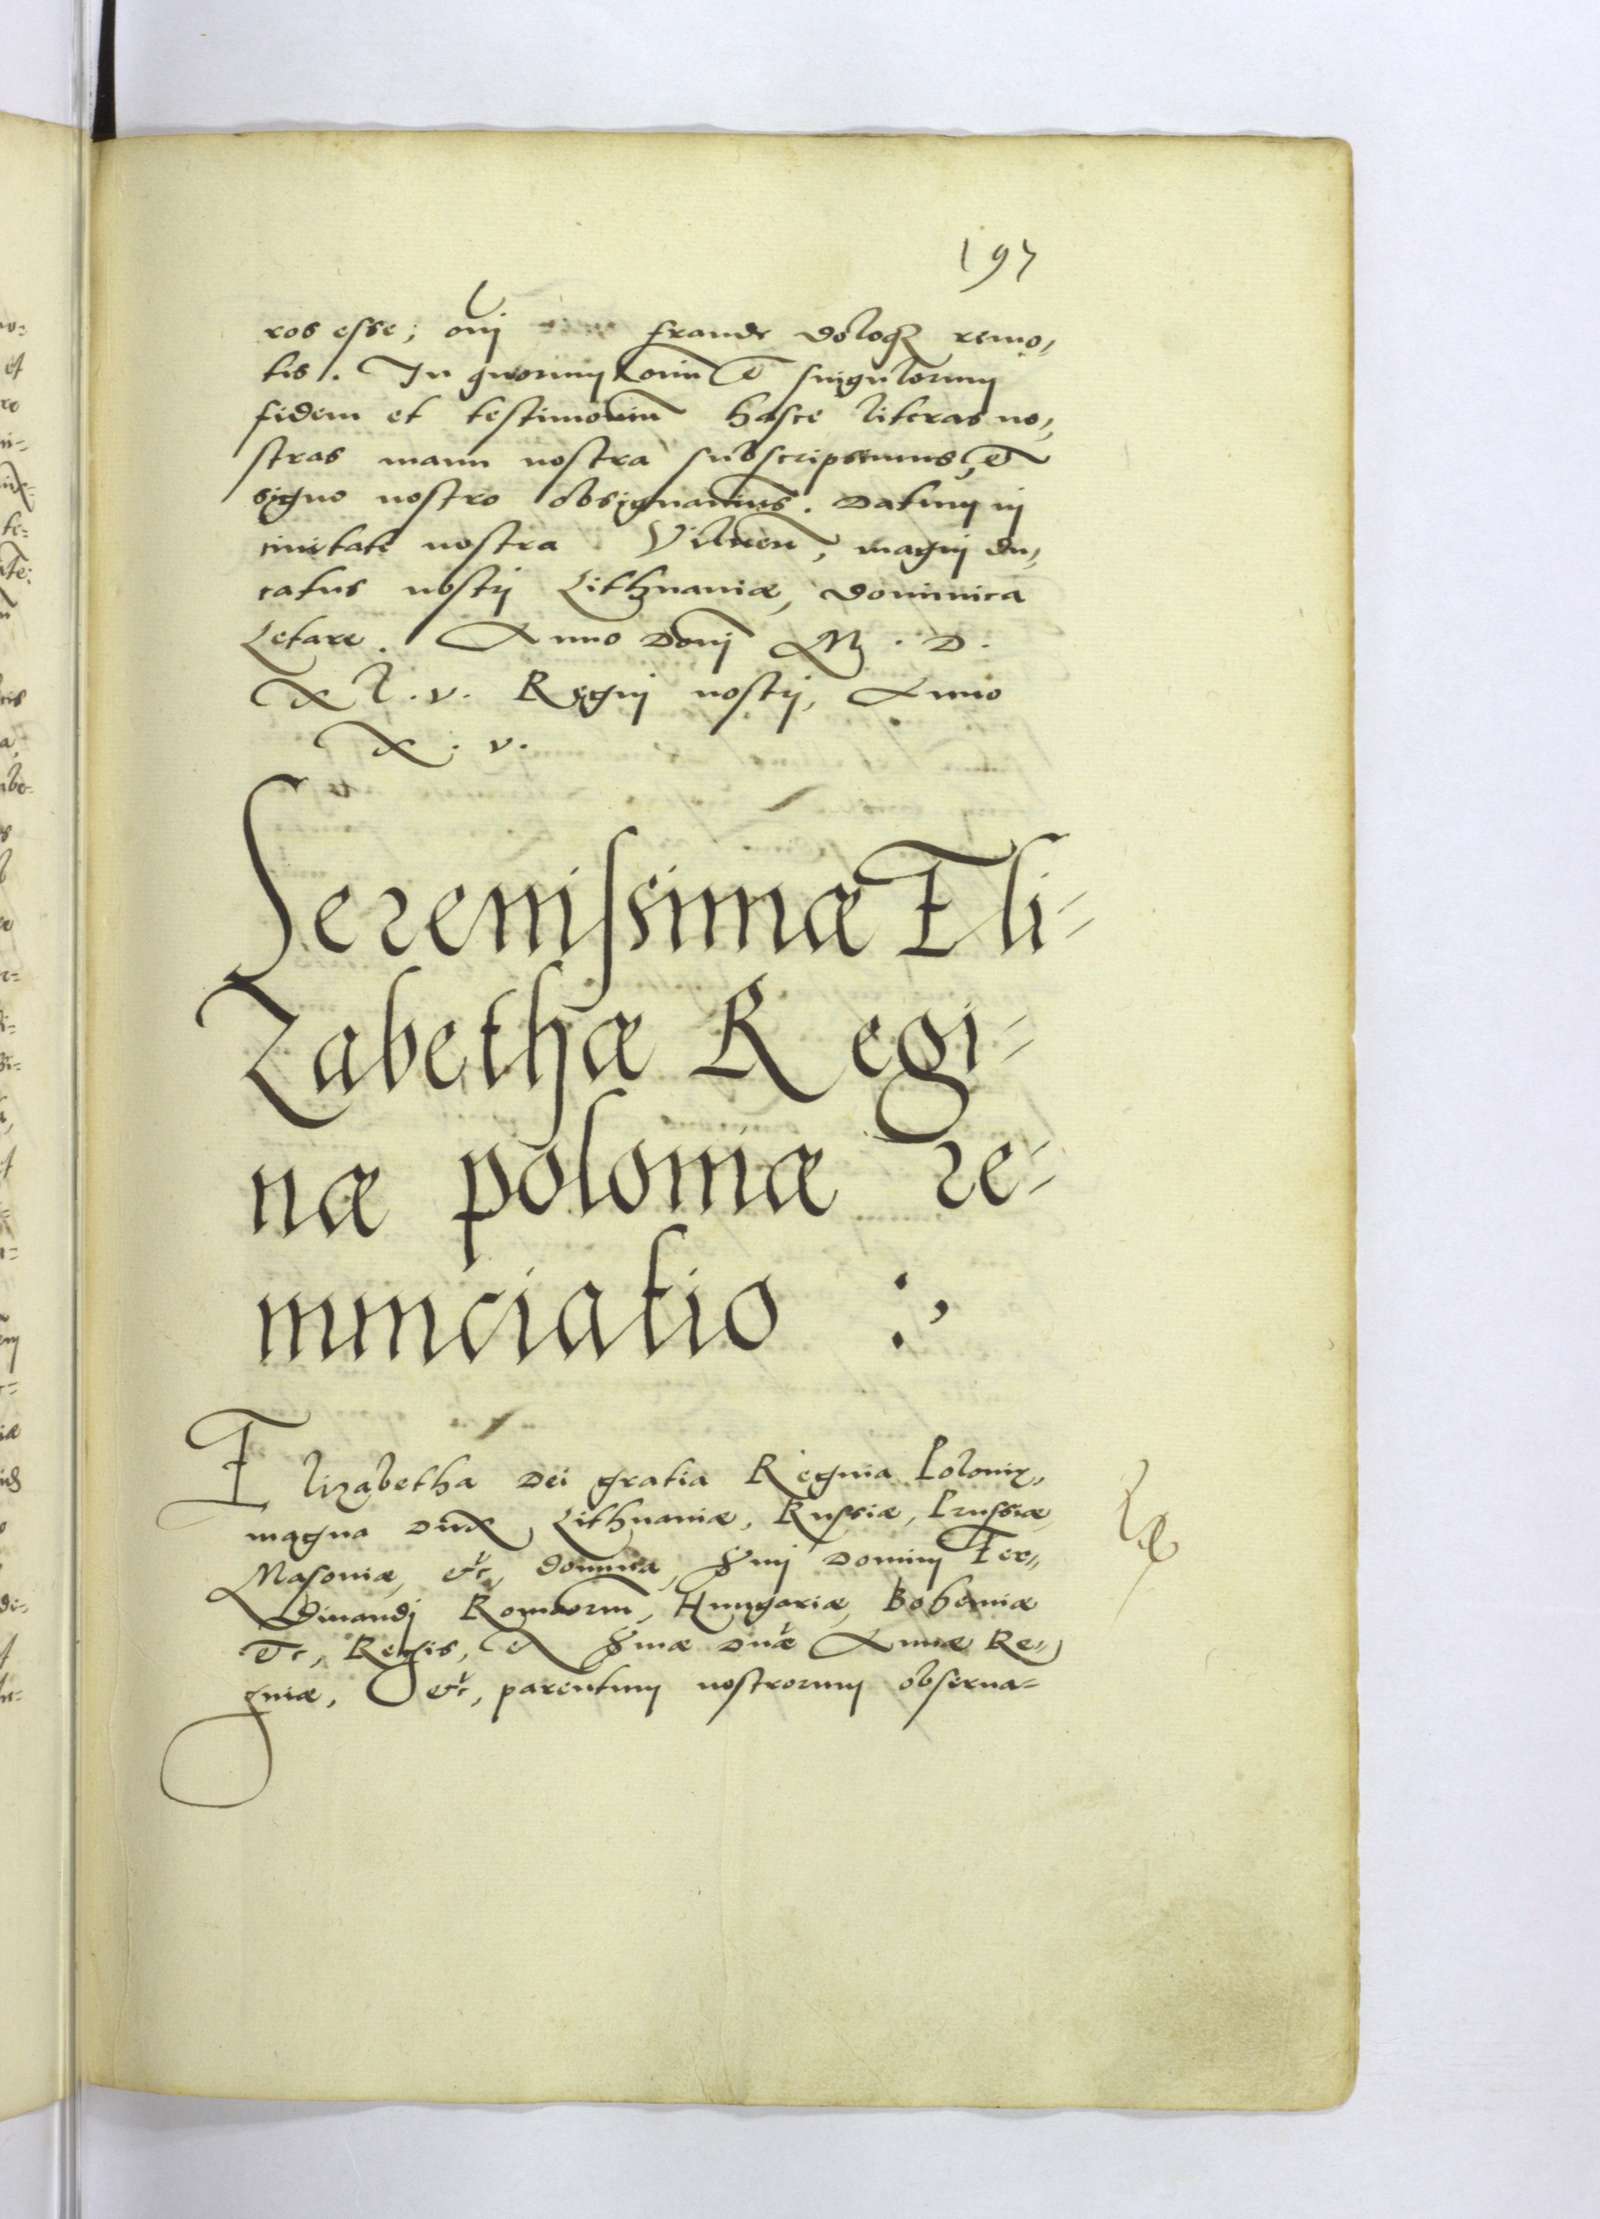 197
ros esse; oĩ fraude doloq₃ remo,,
tis. In quorum om̃ et singulorum
fidem et testimoniũ hasce literas no,,
stras manu nostra subscripsimus, et
signo nostro obsignauimus. Datum in
ciuitate nostra Vilneñ, magni du,,
catus nostri Lithuaniæ, Dominica
Letare. Anno Doñi M. D.
XL.v. Regni nostri, Anno
X. v.
Serenissimæ Eli=
Zabethæ Regi=
næ poloniæ re=
nunciatio :,
Elizabetha Dei gratia Regina Poloniæ,,
magna Dux Lithuaniæ, Russiæ, Prussiæ,
Masouiæ, etc, domina, Sm̃i Domini Fer,,
dinandi Romanorũ, Hungariæ, Bohemiæ
Etc, Regis, et Sm̃æ Dñæ Annæ Re,,
ginæ, etc, parentum nostrorum obserua=